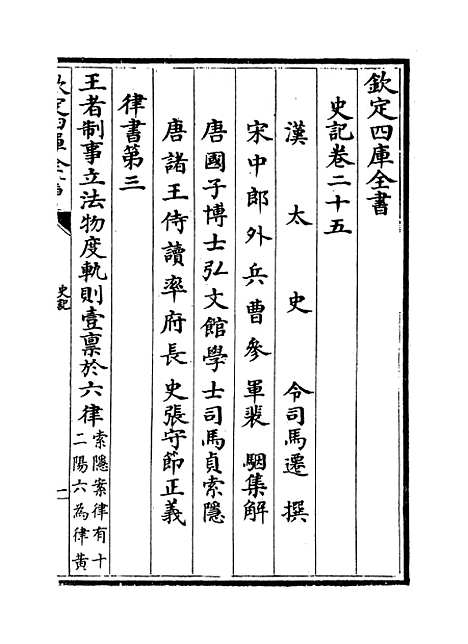 欽定四庫全書
史記卷二十五
漢太史令司馬遷撰
宋中郎外兵曹參軍裴駰集解
唐國子博士弘文館學士司馬貞索隱
唐諸王侍讀率府長史張守節正義
律書第三
王者制事立法物度軌則壹禀於六律索隱案律有十二陽六為律黄
欽定四庫全書
史記